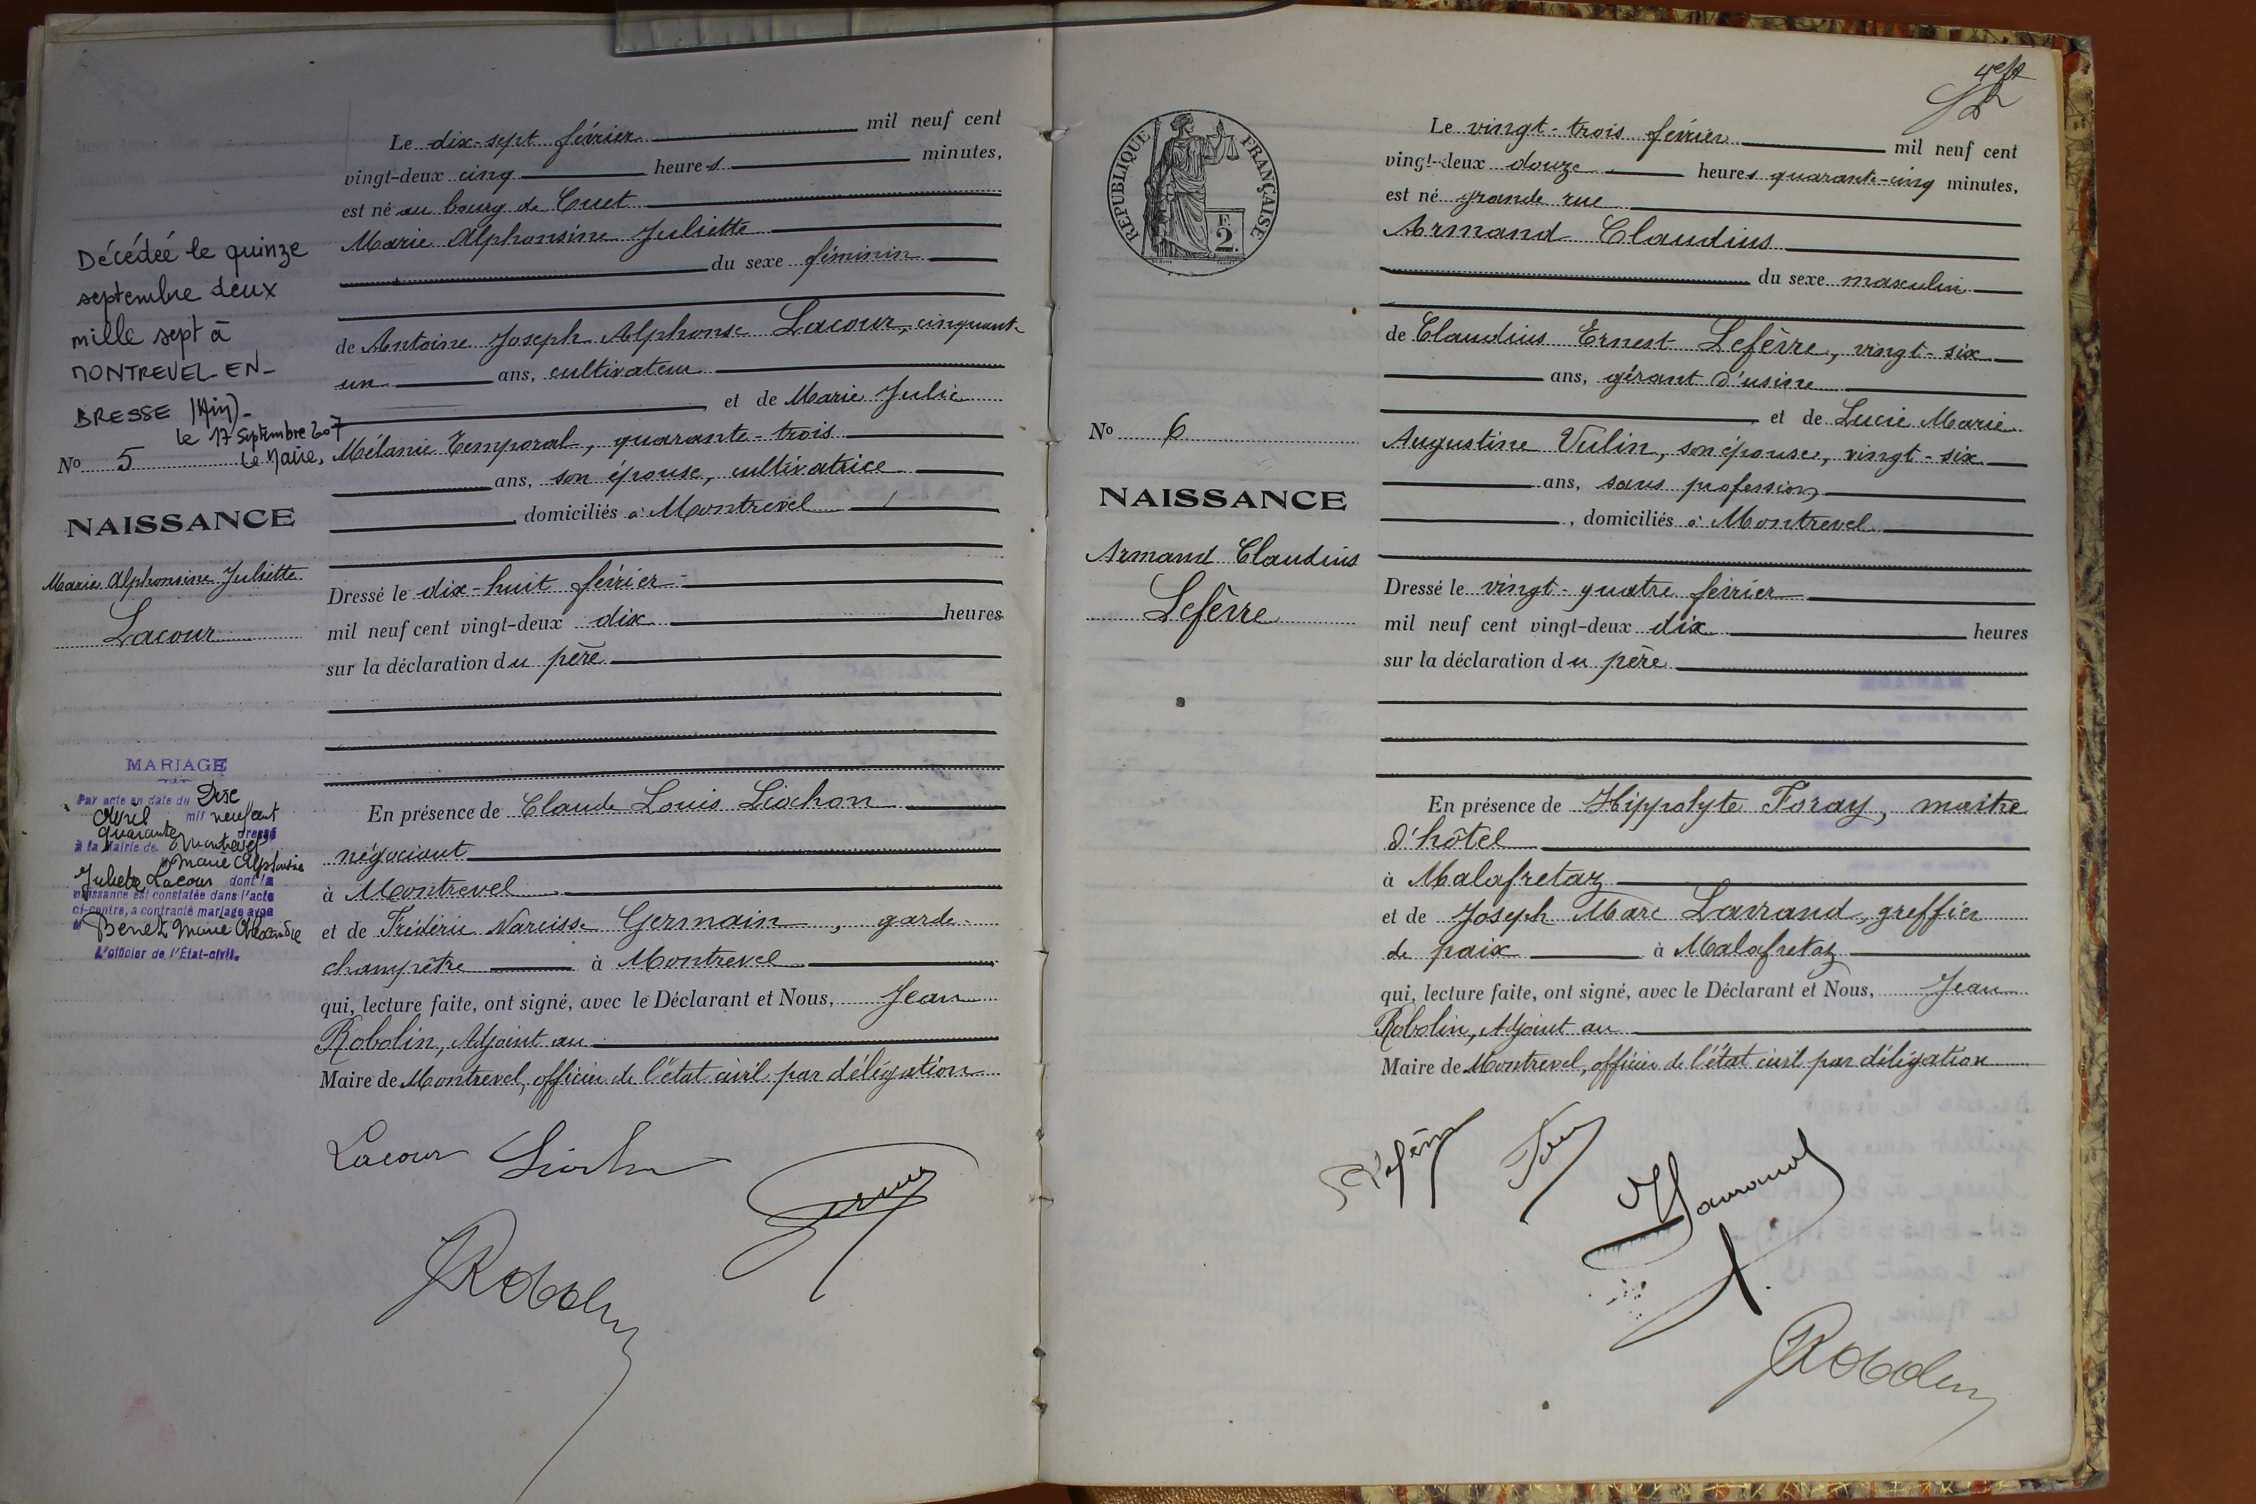 Décédée le quinze
septembre deux
mille sept à
MONTREVEL-EN-
BRESSE (Ain)-
le 17 Septembre 2007
Le Maire,
No 5
NAISSANCE
Marie Alphonsine Juliette
Lacour
MARIAGE
Par acte en date du Dix
Avril mil neuf cent
quarante dressé
à la Mairie de Montrevel
Marie Alphonsine
Juliette Lacour dont la
naissance est constatée dans l'acte
ci-contre, a contracté mariage avec
Benet Marie
L'officier de l'État-civil.
Le dix-sept février mil neuf cent
vingt-deux cinq heures minutes,
est né au bourg de Cuet
Marie Alphonsine Juliette
du sexe féminin
de Antoine Joseph Alphonse Lacour, cinquante-
un ans, cultivateur
et de Marie Julie
Mélanie Temporal, quarante-trois
ans, son épouse, cultivatrice
domiciliés à Montrevel
Dressé le dix-huit février
mil neuf cent vingt-deux dix heures
sur la déclaration du père
En présence de Claude Louis Liochon
négociant
à Montrevel
et de Frédéric Narcisse Germain, garde-
champêtre à Montrevel
qui, lecture faite, ont signé, avec le Déclarant et Nous, Jean
Robolin, Adjoint au
Maire de Montrevel, officier de l'état civil par délégation
Lacour Liochon
JRobolin
4e ft
RÉPUBLIQUE FRANÇAISE
F.
2.
No 6
NAISSANCE
Armand Claudius
Lefèvre
Le vingt-trois février mil neuf cent
vingt-deux douze heures quarante-cinq minutes,
est né grande rue
Armand Claudius
du sexe masculin
de Claudius Ernest Lefèvre, vingt-six
ans, gérant d'usine
et de Lucie Marie
Augustine Vulin, son épouse, vingt-six
ans, sans profession
, domiciliés à Montrevel
Dressé le vingt-quatre février
mil neuf cent vingt-deux dix heures
sur la déclaration du père
En présence de Hippolyte Foray, maître
d'hôtel
à Malafretaz
et de Joseph Marc Larrand, greffier
de paix à Malafretaz
qui, lecture faite, ont signé, avec le Déclarant et Nous, Jean
Robolin, Adjoint au
Maire de Montrevel, officier de l'état civil par délégation
Lefèvre
JRobolin